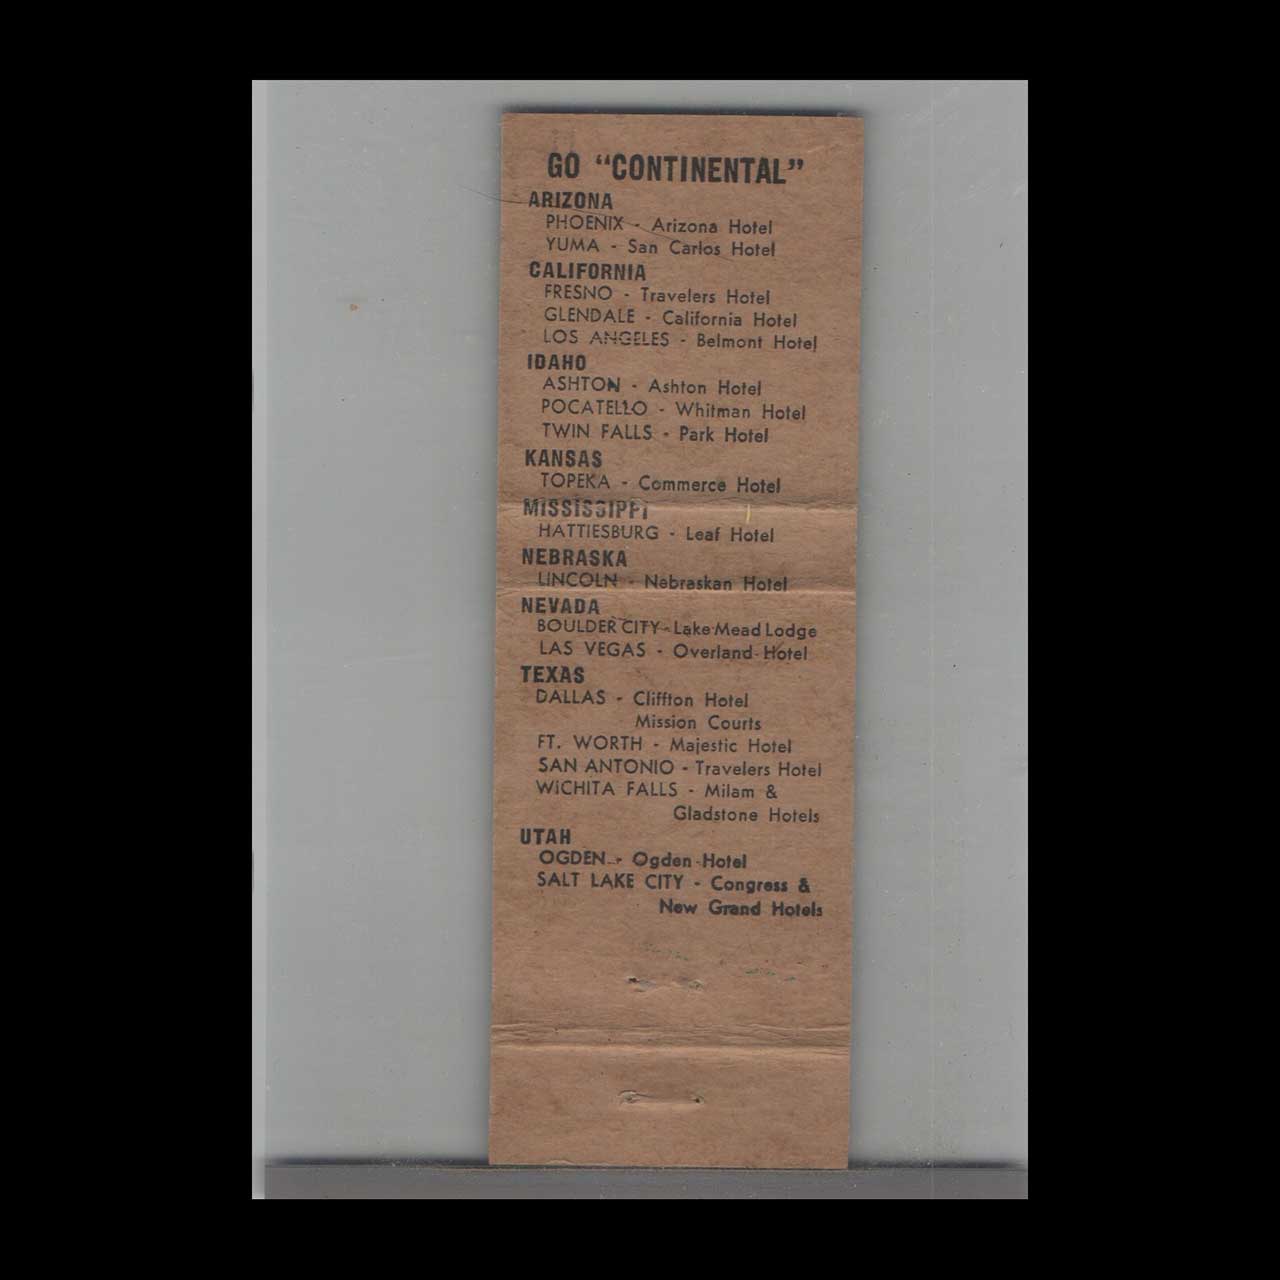 GO “CONTINENTAL”
ARIZONA
PHOENIX - Arizona Hotel
YUMA - San Carlos Hotel
CALIFORNIA
FRESNO - Travelers Hotel
GLENDALE - California Hotel
LOS ANGELES - Belmont Hotel
IDAHO
ASHTON - Ashton Hotel
POCATELLO - Whitman Hotel
TWIN FALLS - Park Hotel
KANSAS
TOPEKA - Commerce Hotel
MISSISSIPPI
HATTIESBURG - Leaf Hotel
NEBRASKA
LINCOLN - Nebraskan Hotel
NEVADA
BOULDER CITY - Lake Mead Lodge
LAS VEGAS - Overland Hotel
TEXAS
DALLAS - Cliffton Hotel
Mission Courts
FT. WORTH - Majestic Hotel
SAN ANTONIO - Travelers Hotel
WICHITA FALLS - Milam &
Gladstone Hotels
UTAH
OGDEN - Ogden Hotel
SALT LAKE CITY - Congress &
New Grand Hotels